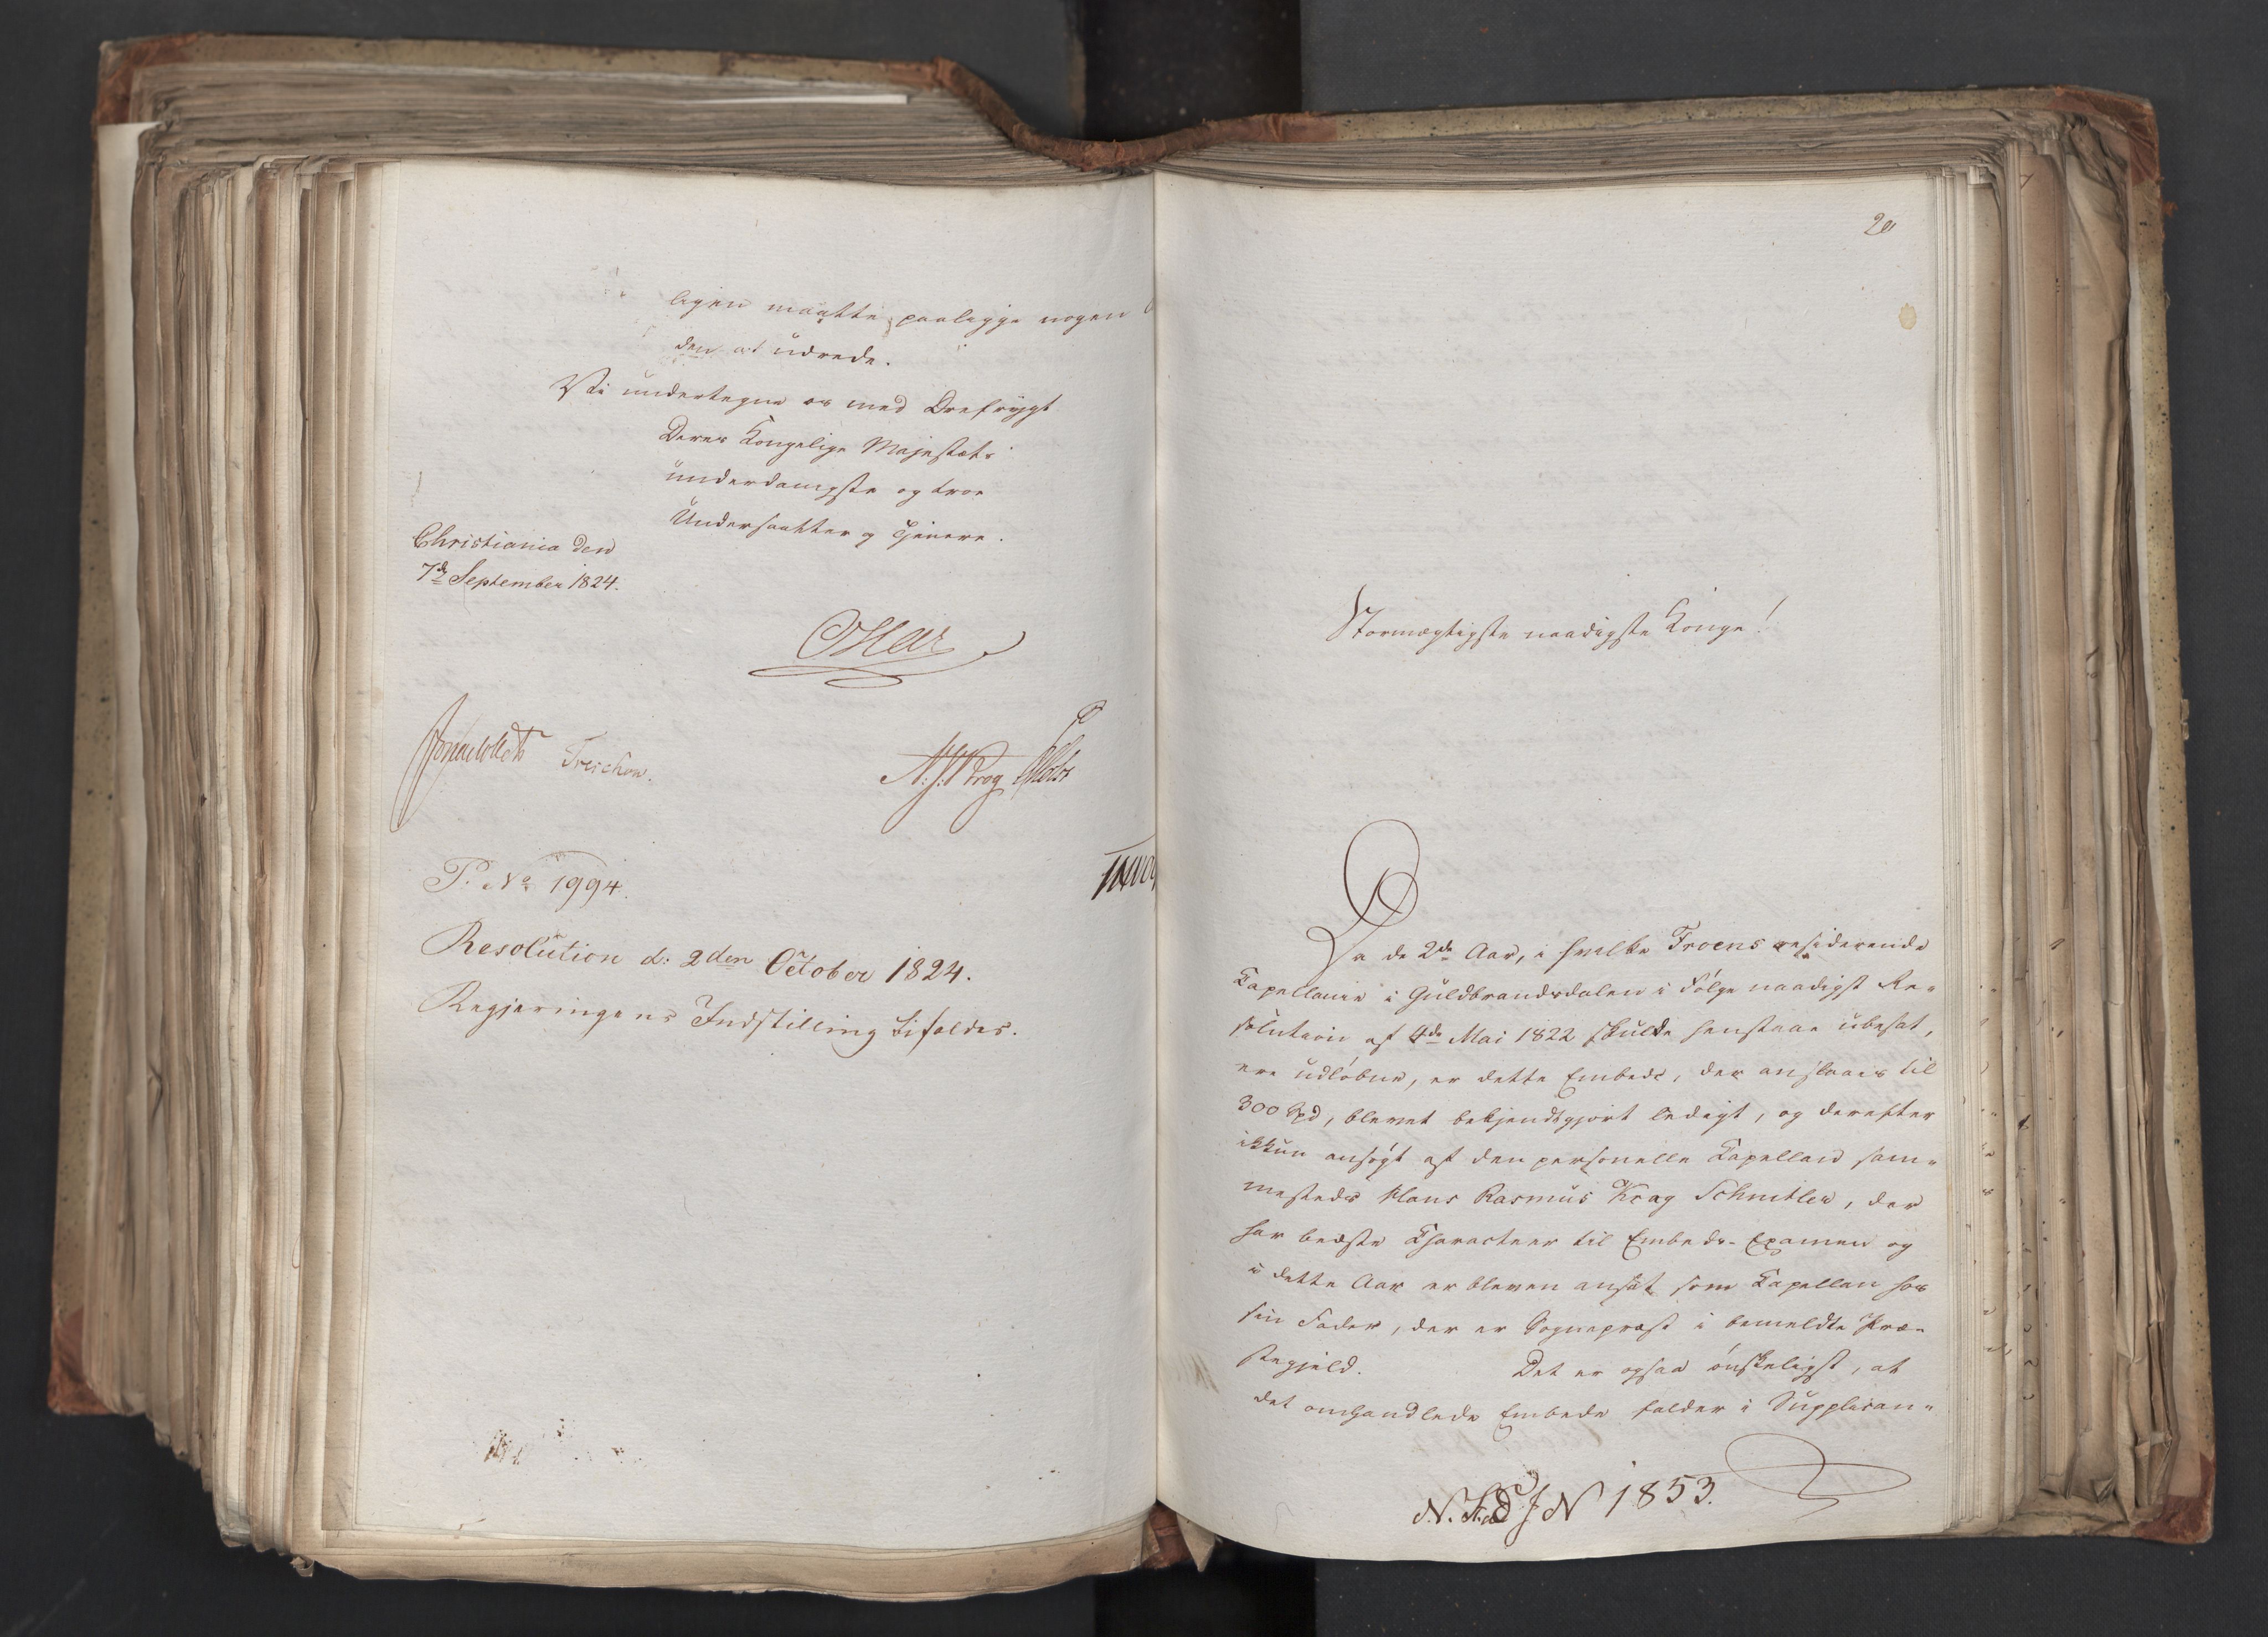 ligen maatte paaligge nogen
den at udrede.
Vi undertegne os med Ærefrygt
Deres Kongelige Majestæts
underdanigste og troe
Undersaatter og Tjenere.
Christiania den
7de September 1824.
Oscar
Treschow.
P. No 1994.
Resolution d: 2den October 1824.
Regjeringens Indstilling bifaldes.
20
Stormægtigste naadigste Konge!
Da de 2de Aar, i hvilke Froens residerende
Kapellanie i Guldbrandsdalen i Følge naadigst Re-
solution af 4de Mai 1822 skulde henstaae ubesat,
ere udløbne, er dette Embede, der anslaaes til
300 Spd, blevet bekjendtgjort ledigt, og derefter
ikkun ansøgt af den personelle Kapellan sam-
mesteds Hans Rasmus Krag Schnitler, der
har bedste Characteer til Embeds-Examen og
i dette Aar er bleven ansat som Kapellan hos
sin Fader, der er Sognepræst i bemeldte Præ-
stegjeld. Det er ogsaa ønskeligst, at
det omhandlede Embede falder i Supplican-
J N 1853.